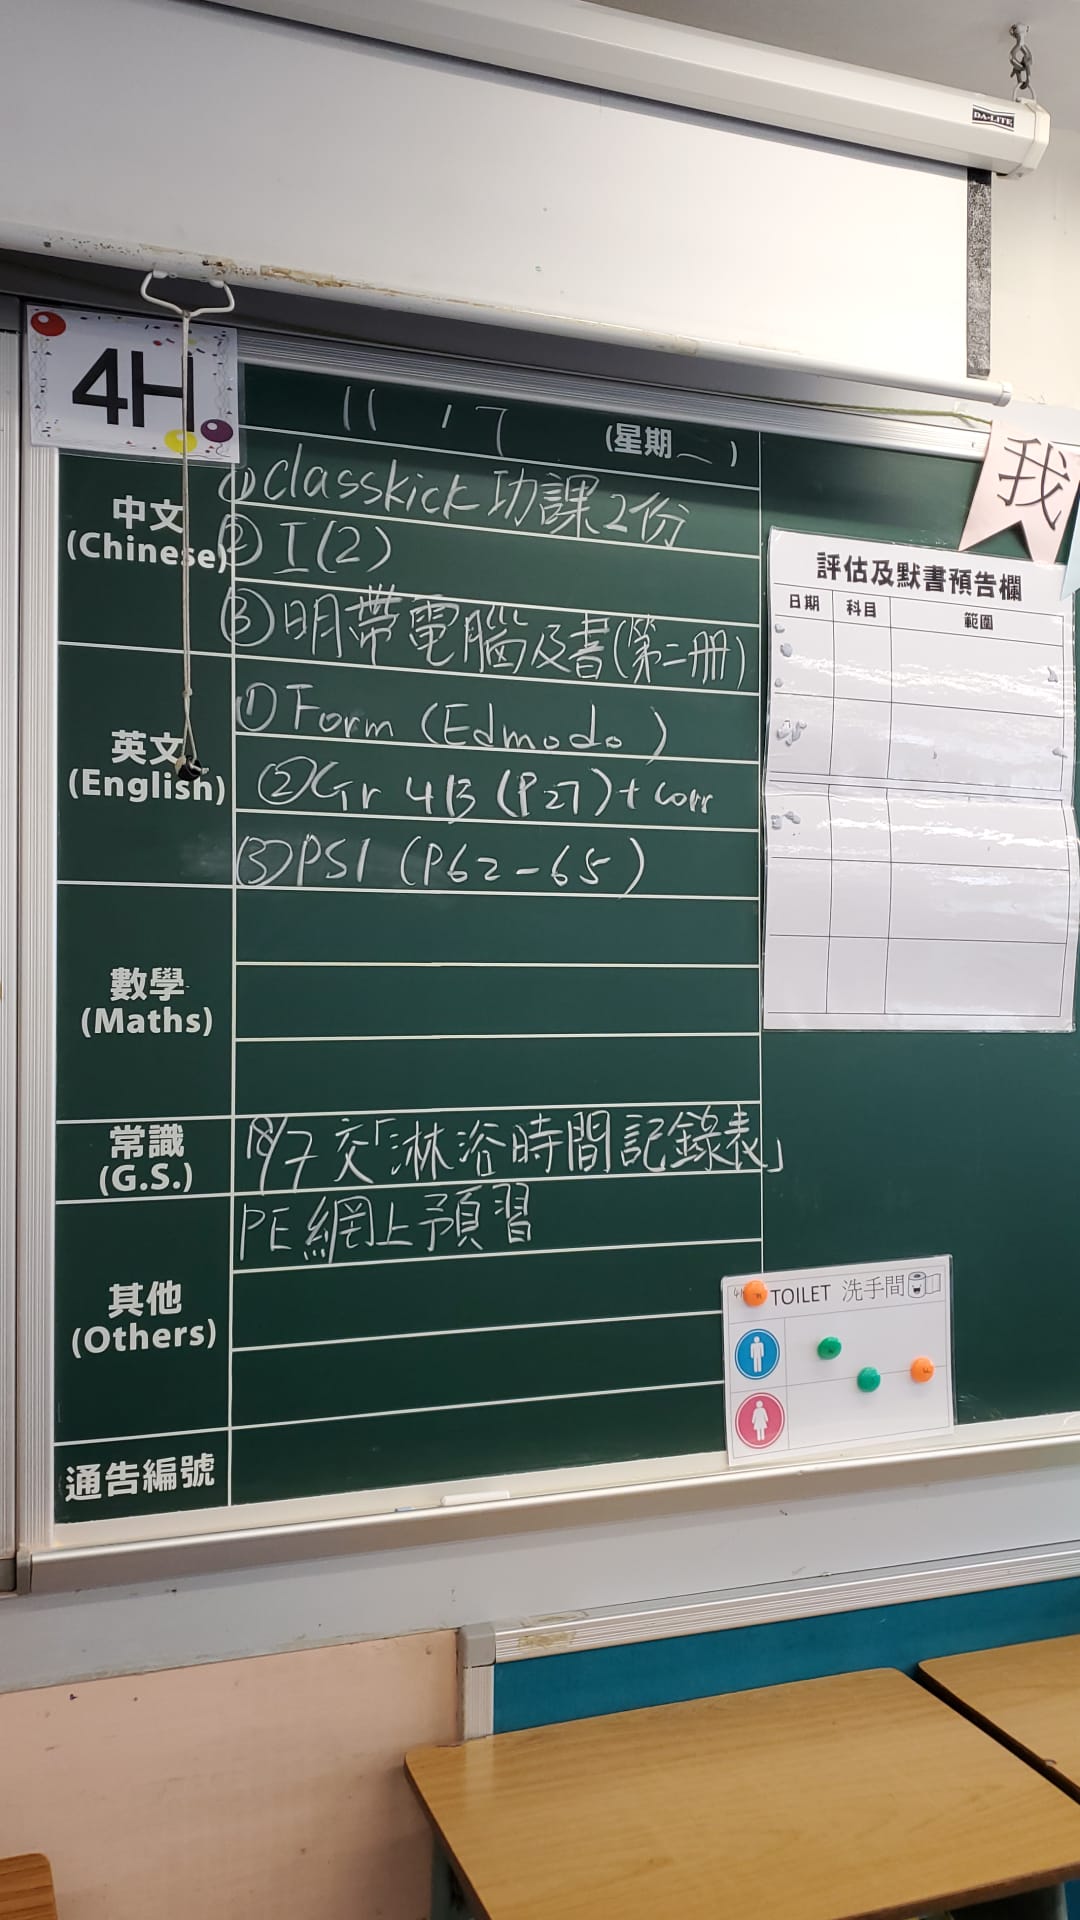 DA-LITE
4H
11 / 7 (星期一)
我
中文
(Chinese)
① Classkick 功課2份
② I(2)
③ 明帶電腦及書(第二冊)
英文
(English)
① Form (Edmodo)
② Gr 4B (P27) + corr
③ PS1 (P62-65)
數學
(Maths)
常識
(G.S.)
18/7 交「淋浴時間記錄表」
其他
(Others)
PE 網上預習
通告編號
評估及默書預告欄
日期 科目 範圍
TOILET 洗手間